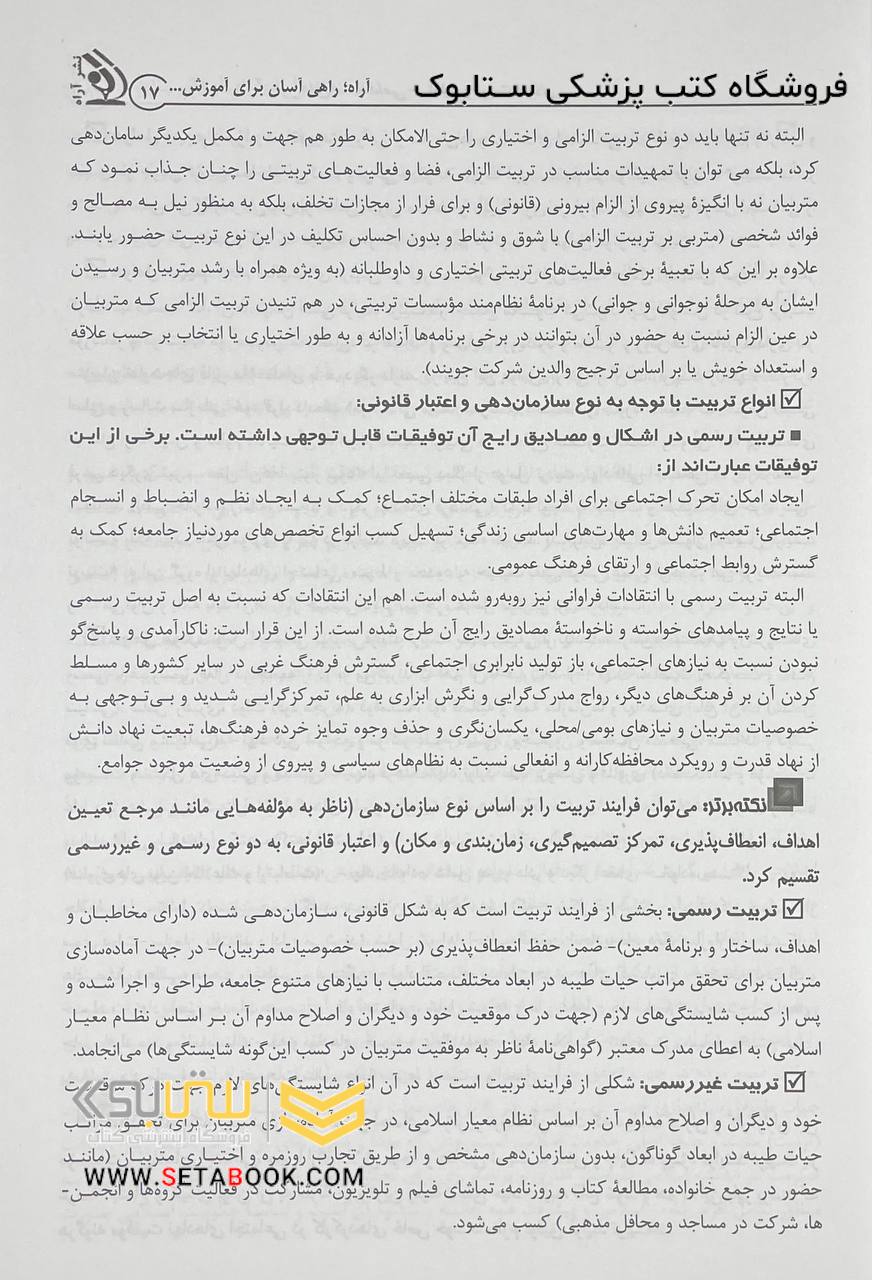 نشر آراه
۱۷
آراه؛ راهی آسان برای آموزش...
فروشگاه کتب پزشکی ستابوک
البته نه تنها باید دو نوع تربیت الزامی و اختیاری را حتی‌الامکان به طور هم جهت و مکمل یکدیگر سامان‌دهی
کرد، بلکه می توان با تمهیدات مناسب در تربیت الزامی، فضا و فعالیت‌های تربیتی را چنان جذاب نمود که
متربیان نه با انگیزهٔ پیروی از الزام بیرونی (قانونی) و برای فرار از مجازات تخلف، بلکه به منظور نیل به مصالح و
فوائد شخصی (متربی بر تربیت الزامی) با شوق و نشاط و بدون احساس تکلیف در این نوع تربیت حضور یابند.
علاوه بر این که با تعبیهٔ برخی فعالیت‌های تربیتی اختیاری و داوطلبانه (به ویژه همراه با رشد متربیان و رسیدن
ایشان به مرحلهٔ نوجوانی و جوانی) در برنامهٔ نظام‌مند مؤسسات تربیتی، در هم تنیدن تربیت الزامی که متربیان
در عین الزام نسبت به حضور در آن بتوانند در برخی برنامه‌ها آزادانه و به طور اختیاری یا انتخاب بر حسب علاقه
و استعداد خویش یا بر اساس ترجیح والدین شرکت جویند).
☑ انواع تربیت با توجه به نوع سازمان‌دهی و اعتبار قانونی:
■ تربیت رسمی در اشکال و مصادیق رایج آن توفیقات قابل توجهی داشته است. برخی از این
توفیقات عبارت‌اند از:
ایجاد امکان تحرک اجتماعی برای افراد طبقات مختلف اجتماع؛ کمک به ایجاد نظم و انضباط و انسجام
اجتماعی؛ تعمیم دانش‌ها و مهارت‌های اساسی زندگی؛ تسهیل کسب انواع تخصص‌های موردنیاز جامعه؛ کمک به
گسترش روابط اجتماعی و ارتقای فرهنگ عمومی.
البته تربیت رسمی با انتقادات فراوانی نیز روبه‌رو شده است. اهم این انتقادات که نسبت به اصل تربیت رسمی
یا نتایج و پیامدهای خواسته و ناخواستهٔ مصادیق رایج آن طرح شده است. از این قرار است: ناکارآمدی و پاسخ‌گو
نبودن نسبت به نیازهای اجتماعی، باز تولید نابرابری اجتماعی، گسترش فرهنگ غربی در سایر کشورها و مسلط
کردن آن بر فرهنگ‌های دیگر، رواج مدرک‌گرایی و نگرش ابزاری به علم، تمرکزگرایی شدید و بی‌توجهی به
خصوصیات متربیان و نیازهای بومی/محلی، یکسان‌نگری و حذف وجوه تمایز خرده فرهنگ‌ها، تبعیت نهاد دانش
از نهاد قدرت و رویکرد محافظه‌کارانه و انفعالی نسبت به نظام‌های سیاسی و پیروی از وضعیت موجود جوامع.
نکته‌برتر: می‌توان فرایند تربیت را بر اساس نوع سازمان‌دهی (ناظر به مؤلفه‌هایی مانند مرجع تعیین
اهداف، انعطاف‌پذیری، تمرکز تصمیم‌گیری، زمان‌بندی و مکان) و اعتبار قانونی، به دو نوع رسمی و غیررسمی
تقسیم کرد.
☑ تربیت رسمی: بخشی از فرایند تربیت است که به شکل قانونی، سازمان‌دهی شده (دارای مخاطبان و
اهداف، ساختار و برنامهٔ معین)- ضمن حفظ انعطاف‌پذیری (بر حسب خصوصیات متربیان)- در جهت آماده‌سازی
متربیان برای تحقق مراتب حیات طیبه در ابعاد مختلف، متناسب با نیازهای متنوع جامعه، طراحی و اجرا شده و
پس از کسب شایستگی‌های لازم (جهت درک موقعیت خود و دیگران و اصلاح مداوم آن بر اساس نظام معیار
اسلامی) به اعطای مدرک معتبر (گواهی‌نامهٔ ناظر به موفقیت متربیان در کسب این‌گونه شایستگی‌ها) می‌انجامد.
☑ تربیت غیررسمی: شکلی از فرایند تربیت است که در آن انواع شایستگی‌های لازم جهت درک موقعیت
خود و دیگران و اصلاح مداوم آن بر اساس نظام معیار اسلامی، در جهت آماده‌سازی متربیان برای تحقق مراتب
حیات طیبه در ابعاد گوناگون، بدون سازمان‌دهی مشخص و از طریق تجارب روزمره و اختیاری متربیان (مانند
حضور در جمع خانواده، مطالعهٔ کتاب و روزنامه، تماشای فیلم و تلویزیون، مشارکت در فعالیت گروه‌ها و انجمن-
ها، شرکت در مساجد و محافل مذهبی) کسب می‌شود.
ستابوک
فروشگاه اینترنتی کتاب
WWW.SETABOOK.COM